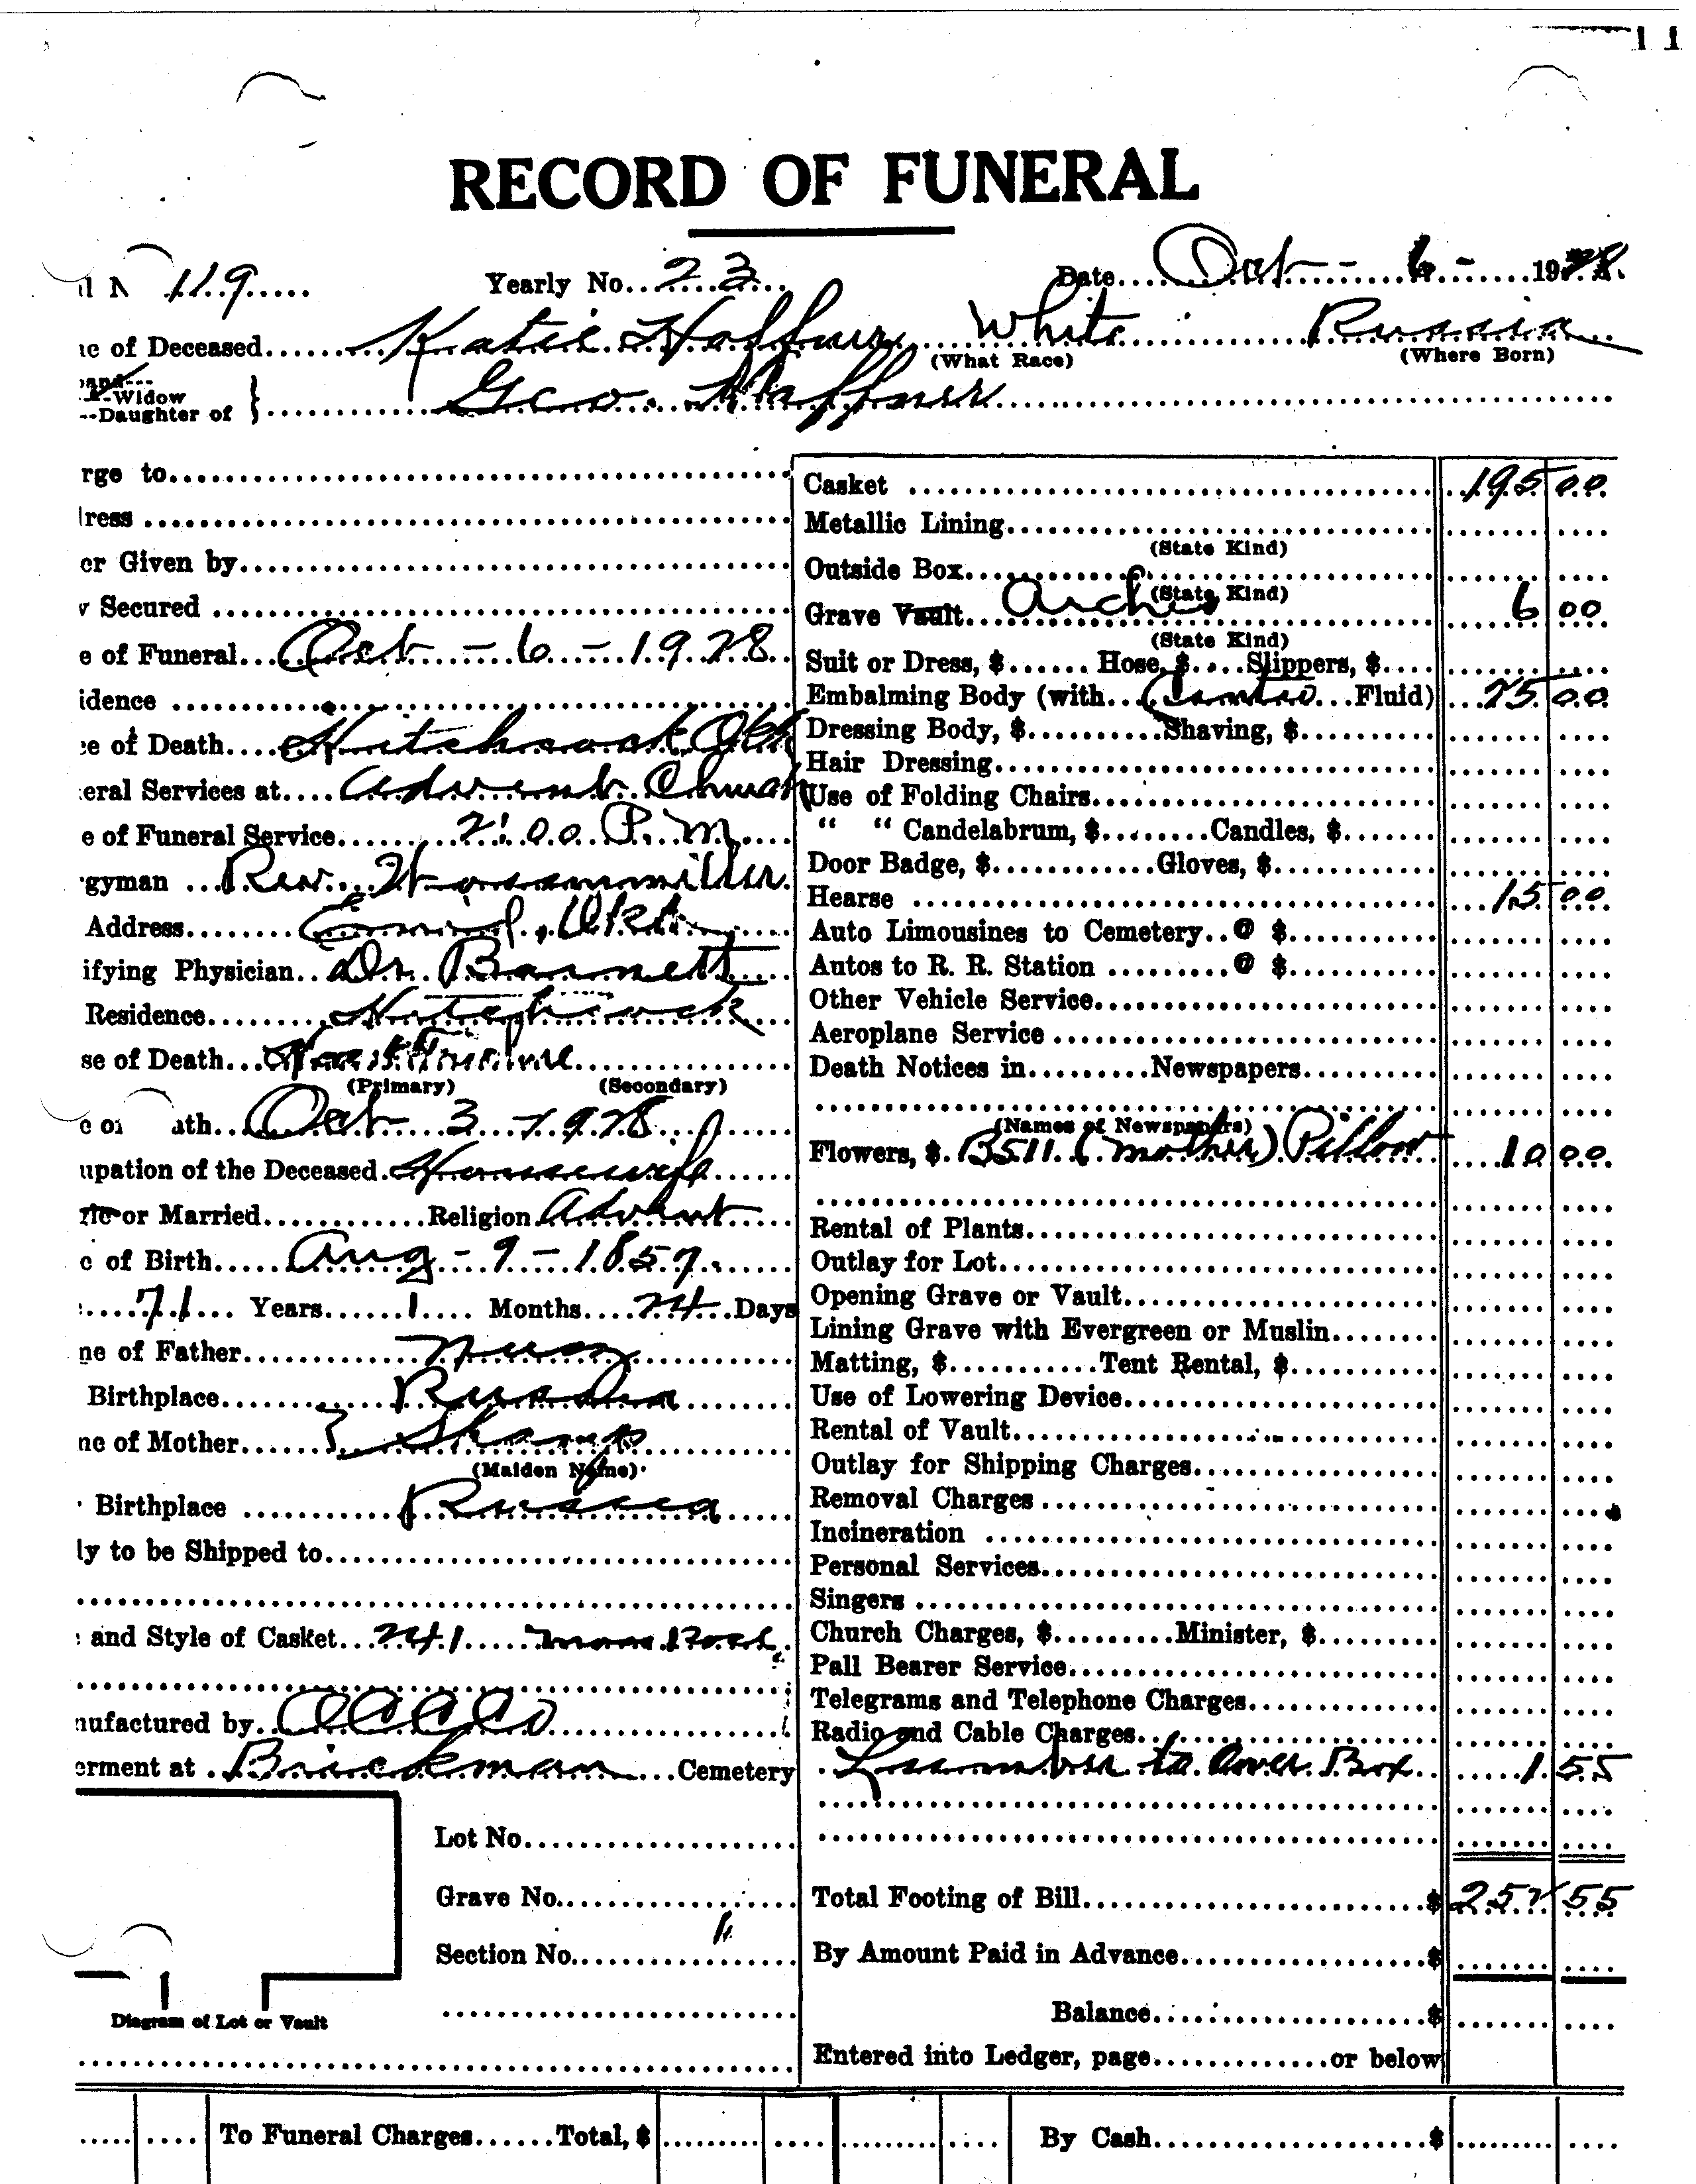 11
RECORD OF FUNERAL
119 Yearly No. 23 Date Oct - 6 - 1928
of Deceased Katie Haffner White Russia
(What Race) (Where Born)
Widow
--Daughter of } Geo. Haffner
rge to
ress
er Given by
Secured
e of Funeral Oct - 6 - 1928
idence
e of Death Hitchcock Okla
eral Services at Advent Church
e of Funeral Service 2:00 P. M.
gyman Rev.
Address Enid, Okla.
ifying Physician Dr. Barnett
Residence Hitchcock
se of Death
(Primary) (Secondary)
ath Oct 3 - 1928
upation of the Deceased Housewife
or Married Religion Advent
of Birth Aug - 9 - 1857
71 Years 1 Months 24 Days
ne of Father
Birthplace Russia
ne of Mother
(Maiden Name)
Birthplace Russia
ly to be Shipped to
and Style of Casket 241
nufactured by
erment at Brickman Cemetery
Lot No.
Grave No.
Section No.
Diagram of Lot or Vault
Casket 195 00
Metallic Lining
(State Kind)
Outside Box
(State Kind)
Grave Vault Arches 6 00
(State Kind)
Suit or Dress, $ Hose, $ Slippers, $
Embalming Body (with Fluid) 25 00
Dressing Body, $ Shaving, $
Hair Dressing
Use of Folding Chairs
" " Candelabrum, $ Candles, $
Door Badge, $ Gloves, $
Hearse 15 00
Auto Limousines to Cemetery @ $
Autos to R. R. Station @ $
Other Vehicle Service
Aeroplane Service
Death Notices in Newspapers
(Names of Newspapers)
Flowers, $ B511 (Mother) Pillow 10 00
Rental of Plants
Outlay for Lot
Opening Grave or Vault
Lining Grave with Evergreen or Muslin
Matting, $ Tent Rental, $
Use of Lowering Device
Rental of Vault
Outlay for Shipping Charges
Removal Charges
Incineration
Personal Services
Singers
Church Charges, $ Minister, $
Pall Bearer Service
Telegrams and Telephone Charges
Radio and Cable Charges
Lumber to Cover Box 1 55
Total Footing of Bill $ 252 55
By Amount Paid in Advance $
Balance $
Entered into Ledger, page or below
To Funeral Charges Total, $ By Cash $